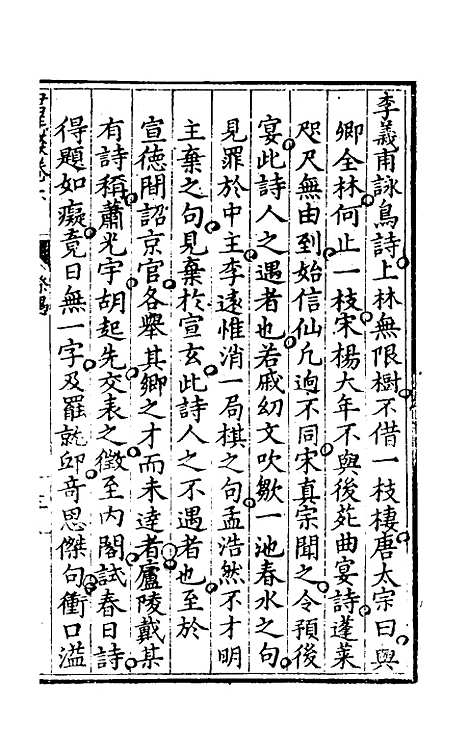 李義甫詠鳥詩上林無限樹不借一枝棲唐太宗曰與
卿全林何止一枝宋楊大年不與後苑曲宴詩蓬萊
咫尺無由到始信仙凡逈不同宋真宗聞之令預後
宴此詩人之遇者也若戚幼文吹皺一池春水之句
見罪於中主李遠惟消一局棋之句孟浩然不才明
主棄之句見棄於宣玄此詩人之不遇者也至於
宣德間詔京官各舉其鄉之才而未達者廬陵戴某
有詩稱蕭光宇胡起先交表之徵至內閣試春日詩
得題如癡竟日無一字及罷乾卯奇思傑句衝口溢